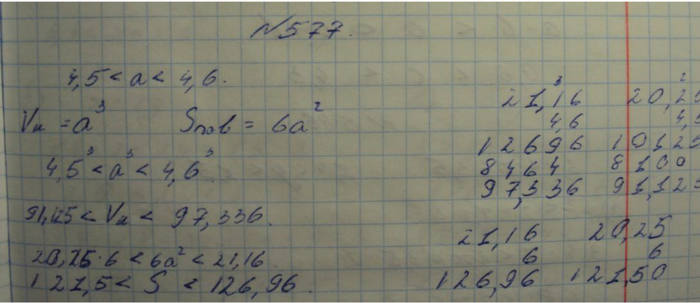 №577.
4,5 < a < 4,6.
Vк = a³ Sпов = 6a²
4,5³ < a³ < 4,6³
91,125 < Vк < 97,336.
20,25·6 < 6a² < 21,16.
121,5 < S < 126,96.
3
21,16
4,6
12696
8464
97,336
21,16
6
126,96
2
20,25
4,5
10125
8100
91,125
20,25
6
121,50